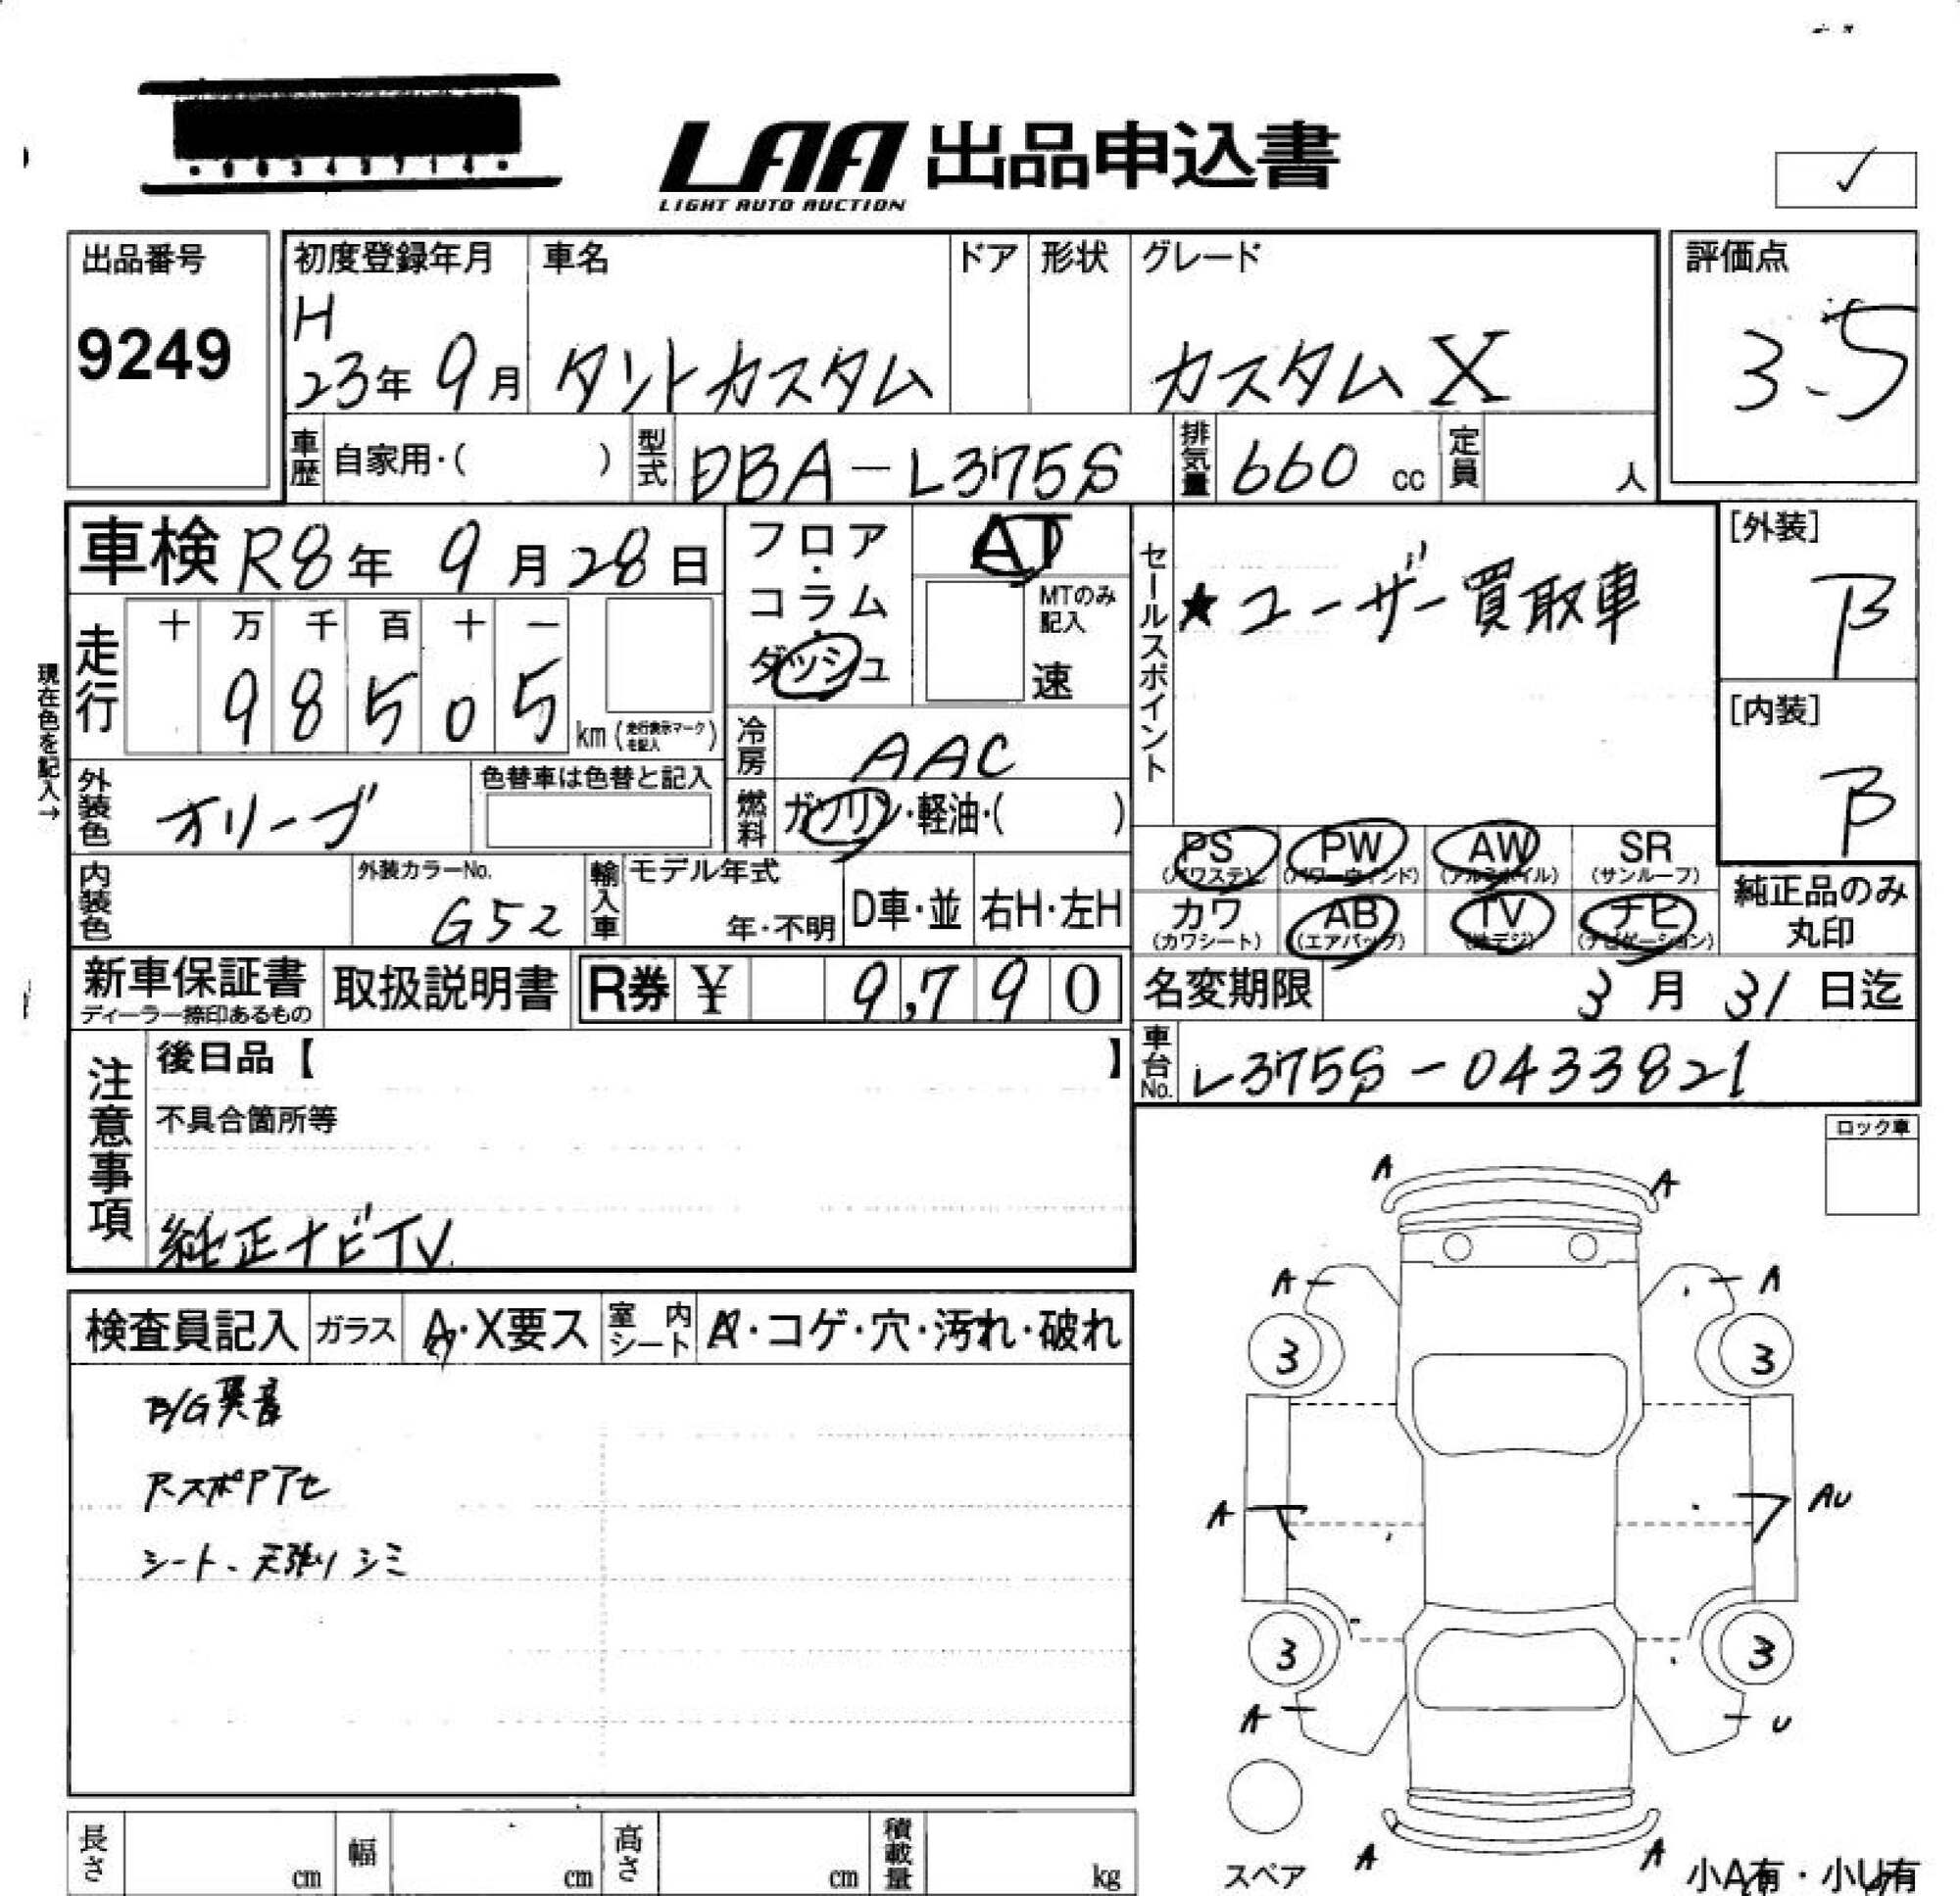 LAA 出品申込書
LIGHT AUTO AUCTION
✓
出品番号
9249
初度登録年月
H
23年 9月
車名
タントカスタム
ドア
形状
グレード
カスタムX
評価点
3.5
車歴 自家用・( )
型式 DBA-L375S
排気量 660 cc
定員 人
車検 R8年 9月28日
走行
十 万 千 百 十 一
9 8 5 0 5
km(走行表示マークを記入)
現在色を記入→
外装色 オリーブ
色替車は色替と記入
内装色
外装カラーNo.
G52
フロア・コラム・ダッシュ
AT
MTのみ記入
速
冷房 AAC
燃料 ガソリン・軽油・( )
輸入車
モデル年式
年・不明
D車・並
右H・左H
セールスポイント
★ユーザー買取車
[外装]
B
[内装]
B
PS PW AW SR
(パワステ) (パワーウィンド) (アルミホイル) (サンルーフ)
カワ AB TV ナビ
(カワシート) (エアバッグ) (地デジ) (ナビゲーション)
純正品のみ
丸印
新車保証書
ディーラー捺印あるもの
取扱説明書
R券 ¥ 9,790
名変期限 3月31日迄
車台No. L375S-0433821
注意事項
後日品【 】
不具合箇所等
純正ナビTV
ロック車
検査員記入
ガラス A・X要ス
室内シート A・コゲ・穴・汚れ・破れ
B/G異音
RスポPアセ
シート、天張りシミ
A A
A A
3 3
A AU
3 3
A U
A A
スペア
小A有・小U有
長さ cm
幅 cm
高さ cm
積載量 kg